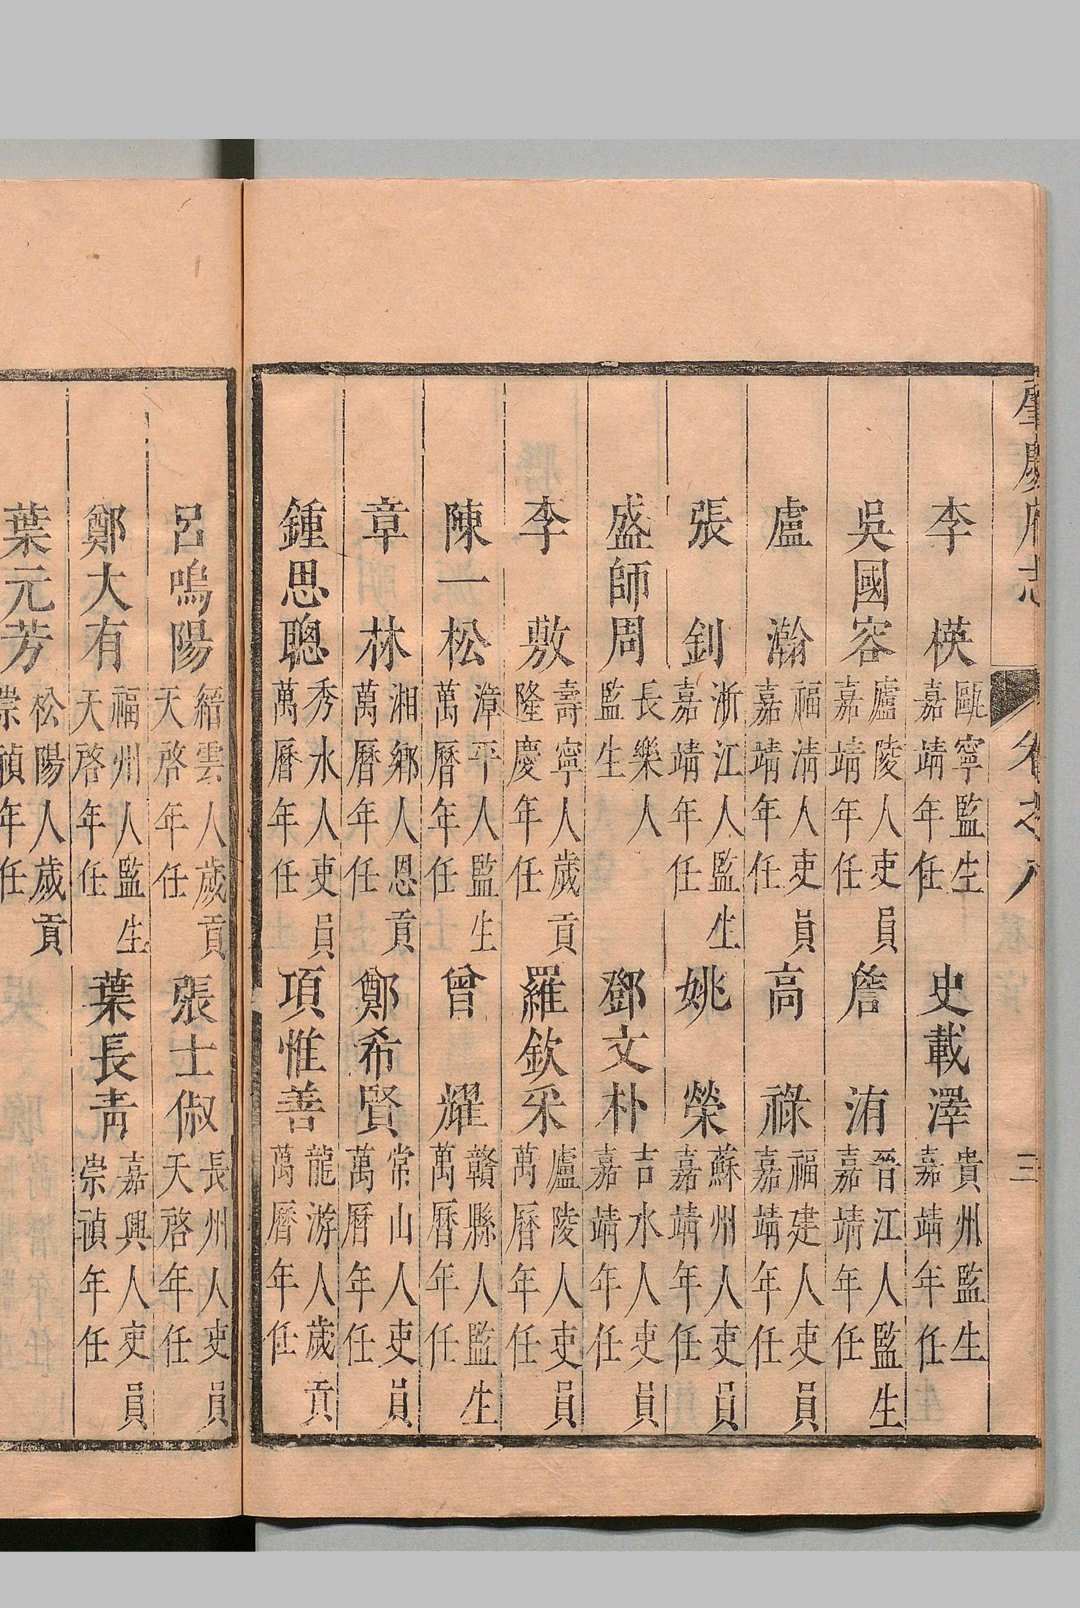 肇慶府志 卷之八 三
李 模 甌寧監生嘉靖年任 史載澤 貴州監生嘉靖年任
吳國容 廬陵人吏員嘉靖年任 詹 洧 晉江人監生嘉靖年任
盧 瀚 福淸人吏員嘉靖年任 高 祿 福建人吏員嘉靖年任
張 釗 浙江人監生嘉靖年任 姚 榮 蘇州人吏員嘉靖年任
盛師周 長樂人監生 鄧文朴 吉水人吏員嘉靖年任
李 敷 壽寧人歲貢隆慶年任 羅欽采 廬陵人吏員萬曆年任
陳一松 漳平人監生萬曆年任 曾 耀 贛縣人監生萬曆年任
章 林 湘鄉人恩貢萬曆年任 鄭希賢 常山人吏員萬曆年任
鍾思聰 秀水人吏員萬曆年任 項惟善 龍游人歲貢萬曆年任
呂鳴陽 縉雲人歲貢天啓年任 張士俶 長州人吏員天啓年任
鄭大有 福州人監生天啓年任 葉長靑 嘉興人吏員崇禎年任
葉元芳 松陽人歲貢崇禎年任